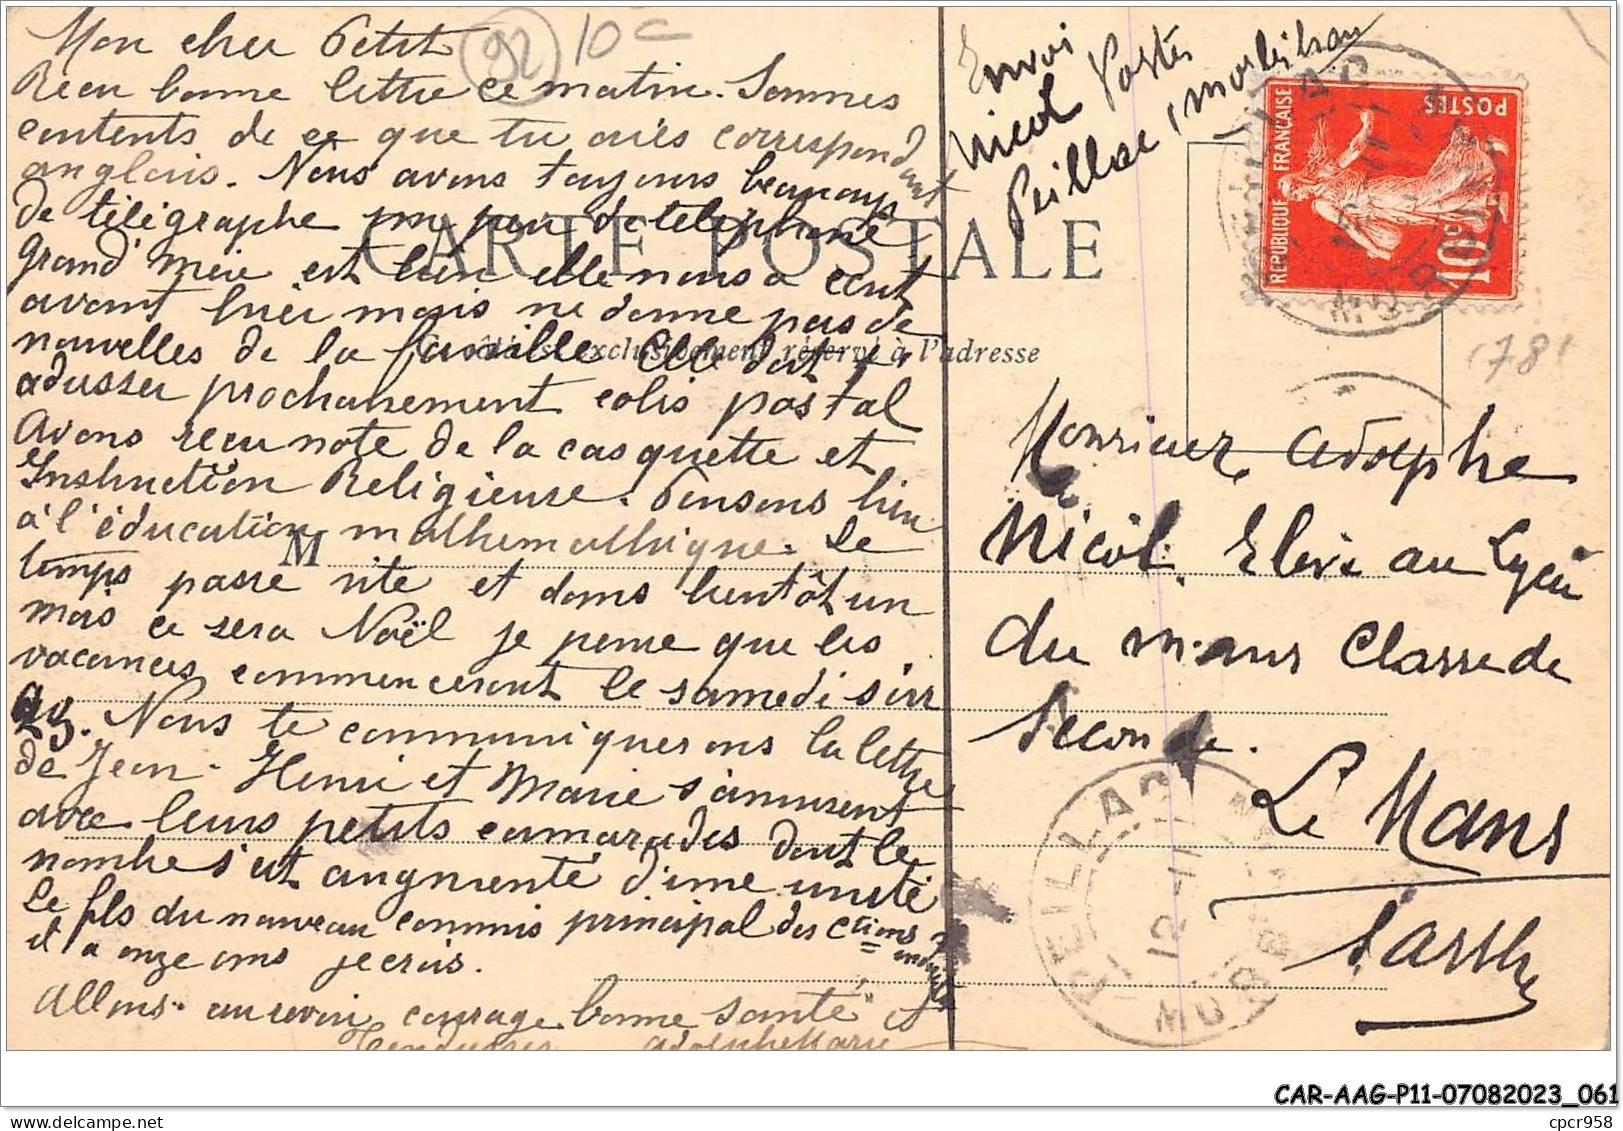 Mon cher Petit
92
10 c
Recu bonne lettre ce matin. Sommes
contents de ce que tu aies correspondant
anglais. Nous avons toujours beaucoup
de télégraphe un peu de telephone
grand'mère est bien elle nous a écrit
avant hier mais ne donne pas de
nouvelles de la famille Elle doit t'
adresser prochainement colis postal
Avons recu note de la casquette et
Instruction Religieuse. Pensons bien
à l'éducation mathemathique. Le
temps passe vite et dans bientôt un
mois ce sera Noël je pense que les
vacances commenceront le samedi soir
23. Nous te communiquerons la lettre
de Jean. Henri et Marie s'amusent
avec leurs petits camarades dont le
nombre s'est augmenté d'une unité
Le fils du nouveau commis principal des Ctions indirectes
il a onze ans je crois.
Allons au revoir courage bonne santé et
Tendresses Adolphe Marie
CARTE POSTALE
Ce côté est exclusivement réservé à l'adresse
M
Envoi
Nicol Postes
Peillac (Morbihan
REPUBLIQUE FRANÇAISE
POSTES
10c
(78)
Monsieur Adolphe
Nicol. Elève au Lycée
du Mans Classe de
Seconde.
Le Mans
Sarthe
PEILLAC
12-11
MORBIHAN
CAR-AAG-P11-07082023_061
cpcr958